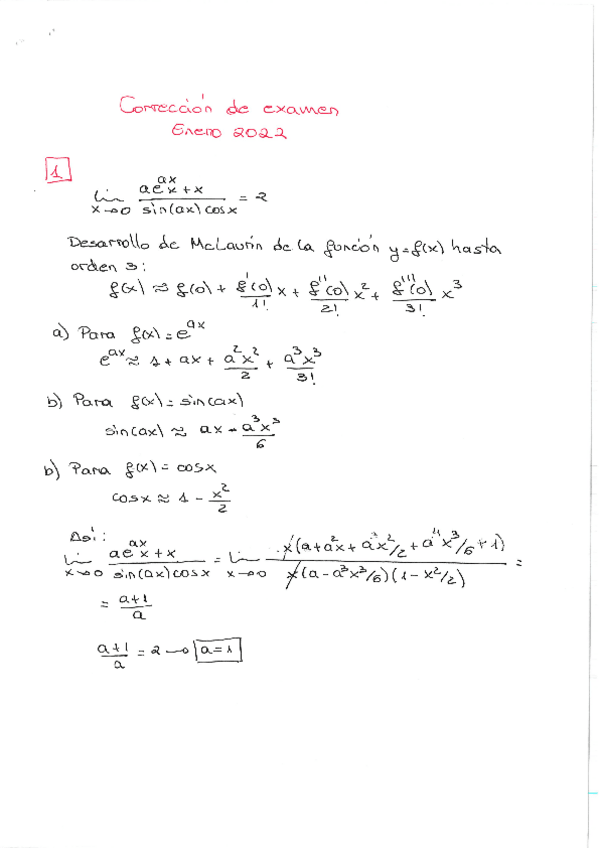 Corrección de examen
Enero 2022
1
lim x→0 (ae^{ax}x+x)/(sin(ax)cosx) = 2
Desarrollo de McLaurin de la función y=f(x) hasta
orden 3:
f(x) ≈ f(0) + f'(0)/1! x + f''(0)/2! x² + f'''(0)/3! x³
a) Para f(x) = e^{ax}
e^{ax} ≈ 1 + ax + a²x²/2 + a³x³/3!
b) Para f(x) = sin(ax)
sin(ax) ≈ ax - a³x³/6
b) Para f(x) = cosx
cosx ≈ 1 - x²/2
Así:
lim x→0 (ae^{ax}x+x)/(sin(ax)cosx) = lim x→0 x(a+a²x+a³x²/2+a⁴x³/6+1)/(x(a-a³x³/6)(1-x²/2)) =
= (a+1)/a
(a+1)/a = 2 → a=1